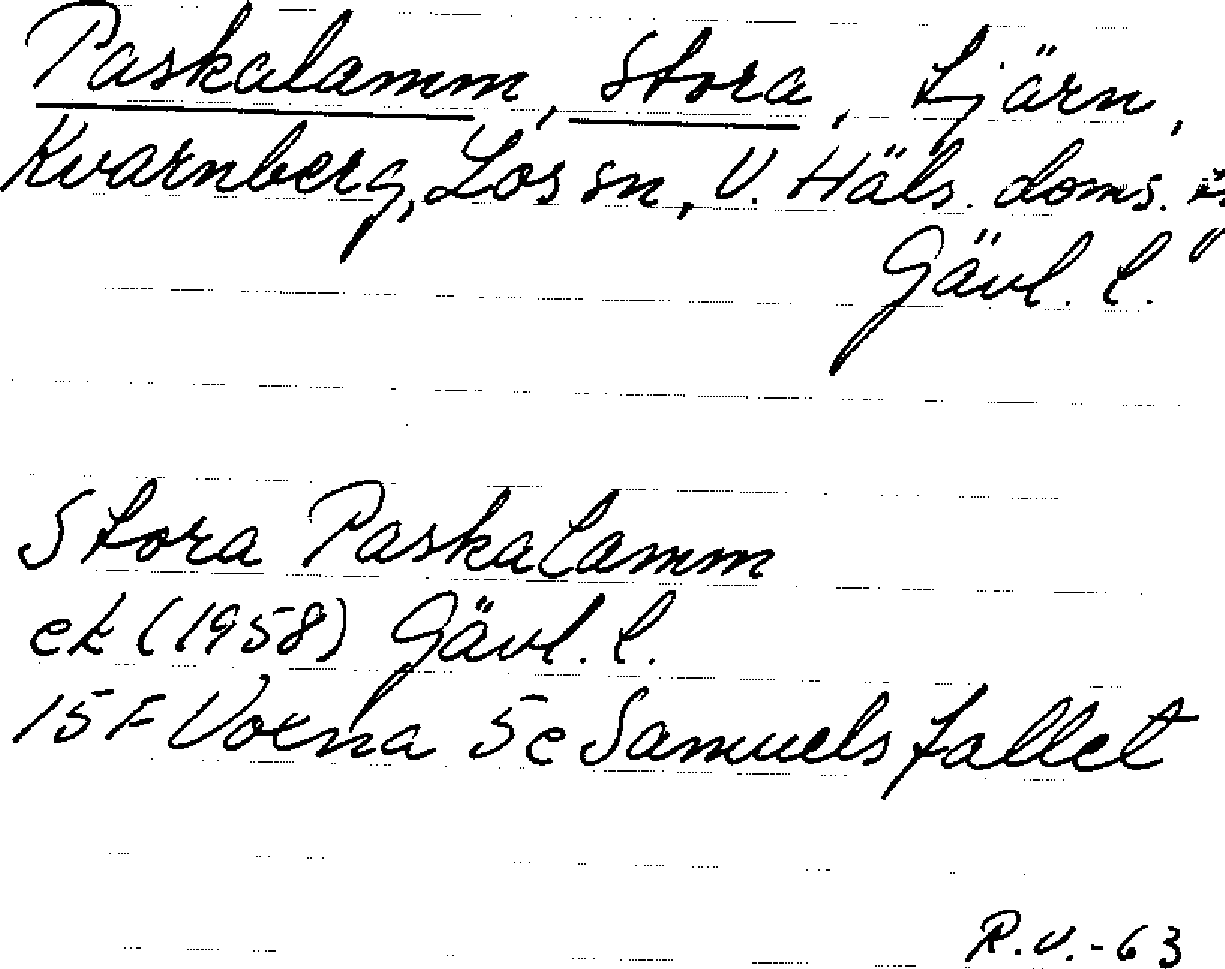 Paskalamm, Stora, tjärn,
Kvarnberg, Los sn, V. Häls. doms.
Gävl. l.
Stora Paskalamm
ek (1958) Gävl. l.
15F Voxna 5e Samuelsfallet
R.V.-63